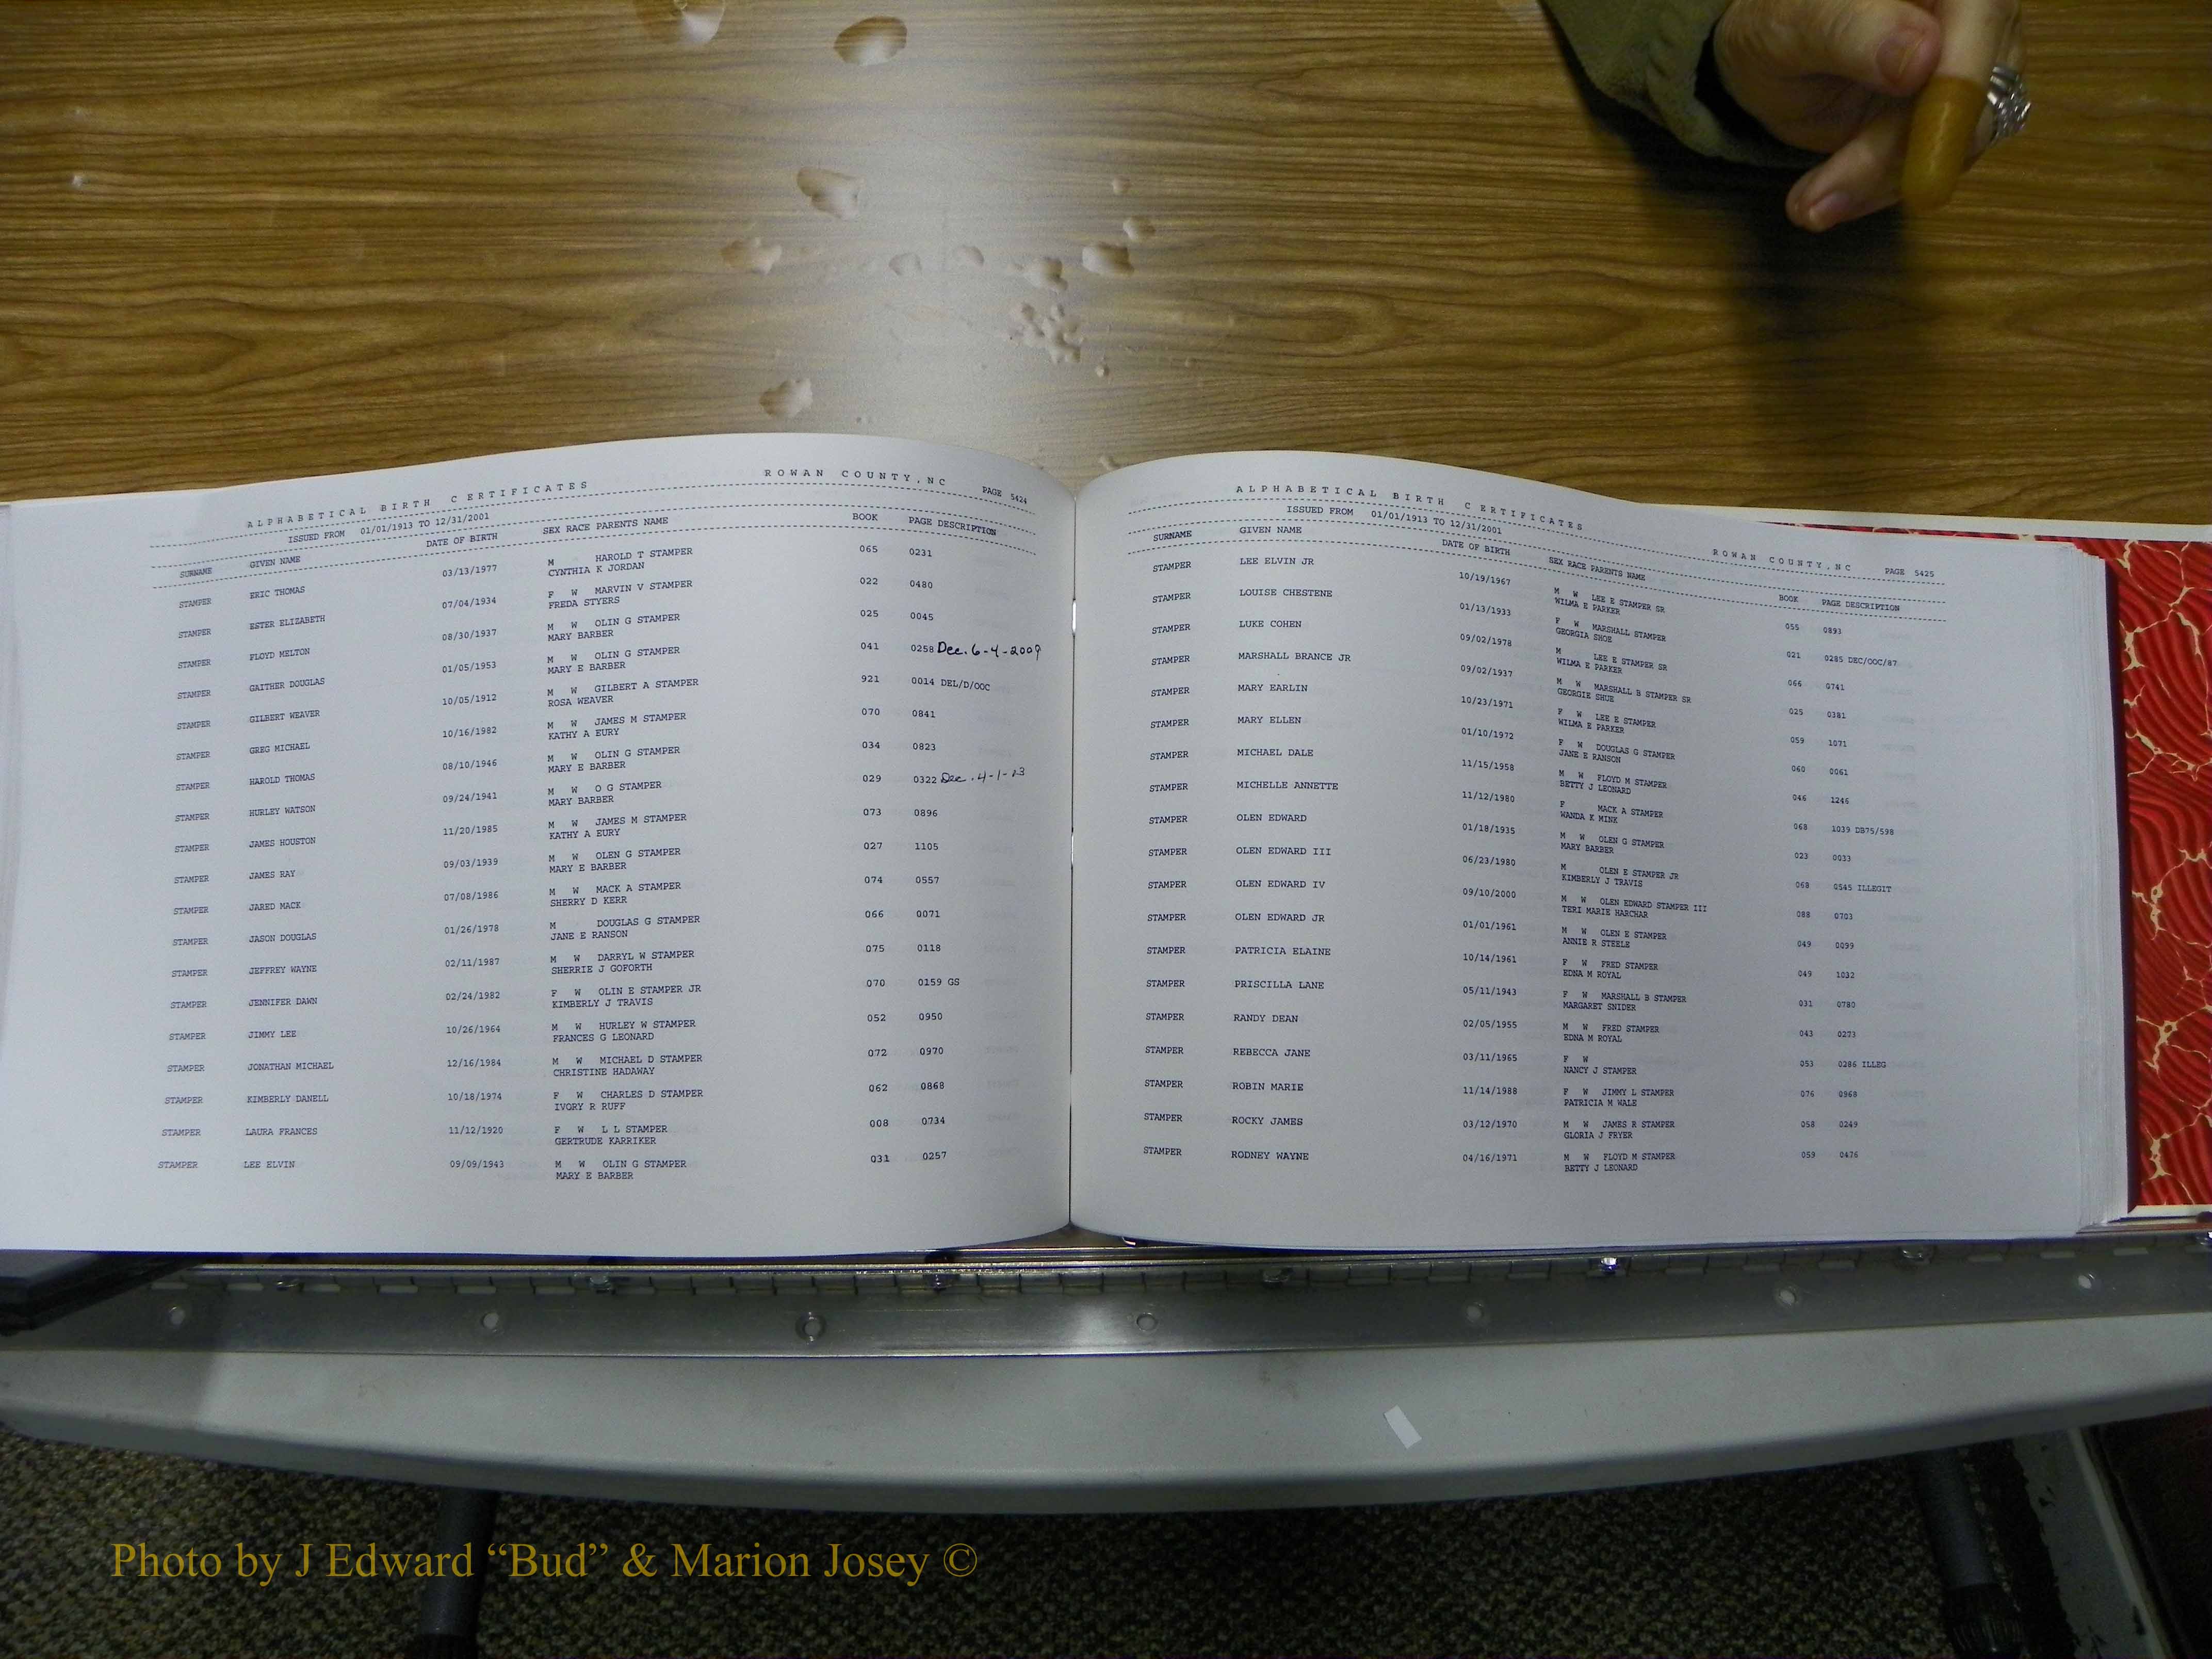 ALPHABETICAL BIRTH CERTIFICATES ROWAN COUNTY,NC PAGE 5424
ISSUED FROM 01/01/1913 TO 12/31/2001
SURNAME GIVEN NAME DATE OF BIRTH SEX RACE PARENTS NAME BOOK PAGE DESCRIPTION
STAMPER ERIC THOMAS 03/13/1977 M HAROLD T STAMPER 065 0231
CYNTHIA K JORDAN
STAMPER ESTER ELIZABETH 07/04/1934 F W MARVIN V STAMPER 022 0480
FREDA STYERS
STAMPER FLOYD MELTON 08/30/1937 M W OLIN G STAMPER 025 0045
MARY BARBER
STAMPER GAITHER DOUGLAS 01/05/1953 M W OLIN G STAMPER 041 0258 Dec. 6-4-2009
MARY E BARBER
STAMPER GILBERT WEAVER 10/05/1912 M W GILBERT A STAMPER 921 0014 DEL/D/OOC
ROSA WEAVER
STAMPER GREG MICHAEL 10/16/1982 M W JAMES M STAMPER 070 0841
KATHY A EURY
STAMPER HAROLD THOMAS 08/10/1946 M W OLIN G STAMPER 034 0823
MARY E BARBER
STAMPER HURLEY WATSON 09/24/1941 M W O G STAMPER 029 0322 Dec. 4-1-23
MARY BARBER
STAMPER JAMES HOUSTON 11/20/1985 M W JAMES M STAMPER 073 0896
KATHY A EURY
STAMPER JAMES RAY 09/03/1939 M W OLEN G STAMPER 027 1105
MARY E BARBER
STAMPER JARED MACK 07/08/1986 M W MACK A STAMPER 074 0557
SHERRY D KERR
STAMPER JASON DOUGLAS 01/26/1978 M DOUGLAS G STAMPER 066 0071
JANE E RANSON
STAMPER JEFFREY WAYNE 02/11/1987 M W DARRYL W STAMPER 075 0118
SHERRIE J GOFORTH
STAMPER JENNIFER DAWN 02/24/1982 F W OLIN E STAMPER JR 070 0159 GS
KIMBERLY J TRAVIS
STAMPER JIMMY LEE 10/26/1964 M W HURLEY W STAMPER 052 0950
FRANCES G LEONARD
STAMPER JONATHAN MICHAEL 12/16/1984 M W MICHAEL D STAMPER 072 0970
CHRISTINE HADAWAY
STAMPER KIMBERLY DANELL 10/18/1974 F W CHARLES D STAMPER 062 0868
IVORY R RUFF
STAMPER LAURA FRANCES 11/12/1920 F W L L STAMPER 008 0734
GERTRUDE KARRIKER
STAMPER LEE ELVIN 09/09/1943 M W OLIN G STAMPER 031 0257
MARY E BARBER
ALPHABETICAL BIRTH CERTIFICATES ROWAN COUNTY,NC PAGE 5425
ISSUED FROM 01/01/1913 TO 12/31/2001
SURNAME GIVEN NAME DATE OF BIRTH SEX RACE PARENTS NAME BOOK PAGE DESCRIPTION
STAMPER LEE ELVIN JR 10/19/1967 M W LEE E STAMPER SR 055 0893
WILMA E PARKER
STAMPER LOUISE CHESTENE 01/13/1933 F W MARSHALL STAMPER 021 0285 DEC/OOC/87
GEORGIA SHOE
STAMPER LUKE COHEN 09/02/1978 M LEE E STAMPER SR 066 0741
WILMA E PARKER
STAMPER MARSHALL BRANCE JR 09/02/1937 M W MARSHALL B STAMPER SR 025 0381
GEORGIE SHUE
STAMPER MARY EARLIN 10/23/1971 F W LEE E STAMPER 059 1071
WILMA E PARKER
STAMPER MARY ELLEN 01/10/1972 F W DOUGLAS G STAMPER 060 0061
JANE E RANSON
STAMPER MICHAEL DALE 11/15/1958 M W FLOYD M STAMPER 046 1246
BETTY J LEONARD
STAMPER MICHELLE ANNETTE 11/12/1980 F MACK A STAMPER 068 1039 DB75/598
WANDA K MINK
STAMPER OLEN EDWARD 01/18/1935 M W OLEN G STAMPER 023 0033
MARY BARBER
STAMPER OLEN EDWARD III 06/23/1980 M OLEN E STAMPER JR 068 0545 ILLEGIT
KIMBERLY J TRAVIS
STAMPER OLEN EDWARD IV 09/10/2000 M W OLEN EDWARD STAMPER III 088 0703
TERI MARIE HARCHAR
STAMPER OLEN EDWARD JR 01/01/1961 M W OLEN E STAMPER 049 0099
ANNIE R STEELE
STAMPER PATRICIA ELAINE 10/14/1961 F W FRED STAMPER 049 1032
EDNA M ROYAL
STAMPER PRISCILLA LANE 05/11/1943 F W MARSHALL B STAMPER 031 0780
MARGARET SNIDER
STAMPER RANDY DEAN 02/05/1955 M W FRED STAMPER 043 0273
EDNA M ROYAL
STAMPER REBECCA JANE 03/11/1965 F W 053 0286 ILLEG
NANCY J STAMPER
STAMPER ROBIN MARIE 11/14/1988 F W JIMMY L STAMPER 076 0968
PATRICIA M WALE
STAMPER ROCKY JAMES 03/12/1970 M W JAMES R STAMPER 058 0249
GLORIA J FRYER
STAMPER RODNEY WAYNE 04/16/1971 M W FLOYD M STAMPER 059 0476
BETTY J LEONARD
Photo by J Edward “Bud” & Marion Josey ©